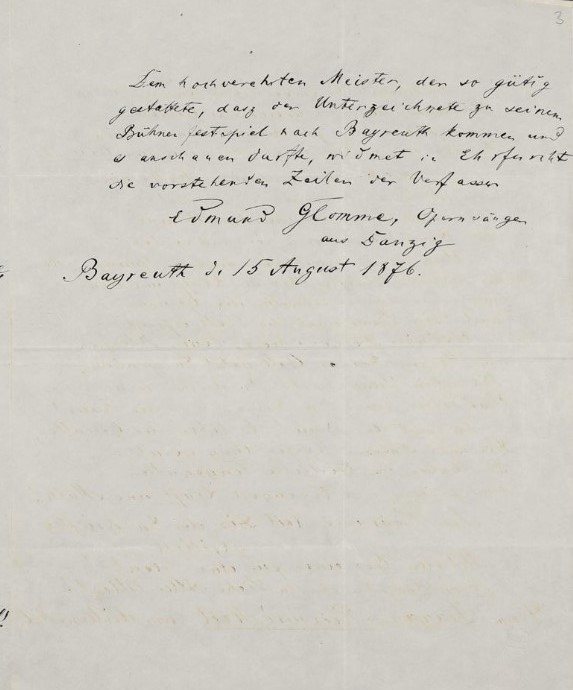 3
Dem hochverehrten Meister, der so gütig
gestattete, dasz der Unterzeichnete zu seinem
Bühnenfestspiel nach Bayreuth kommen und
es anschauen durfte, widmet in Ehrfurcht
die vorstehenden Zeilen der Verfasser
Edmund Glomme, Opernsänger
aus Danzig
Bayreuth d. 15 August 1876.